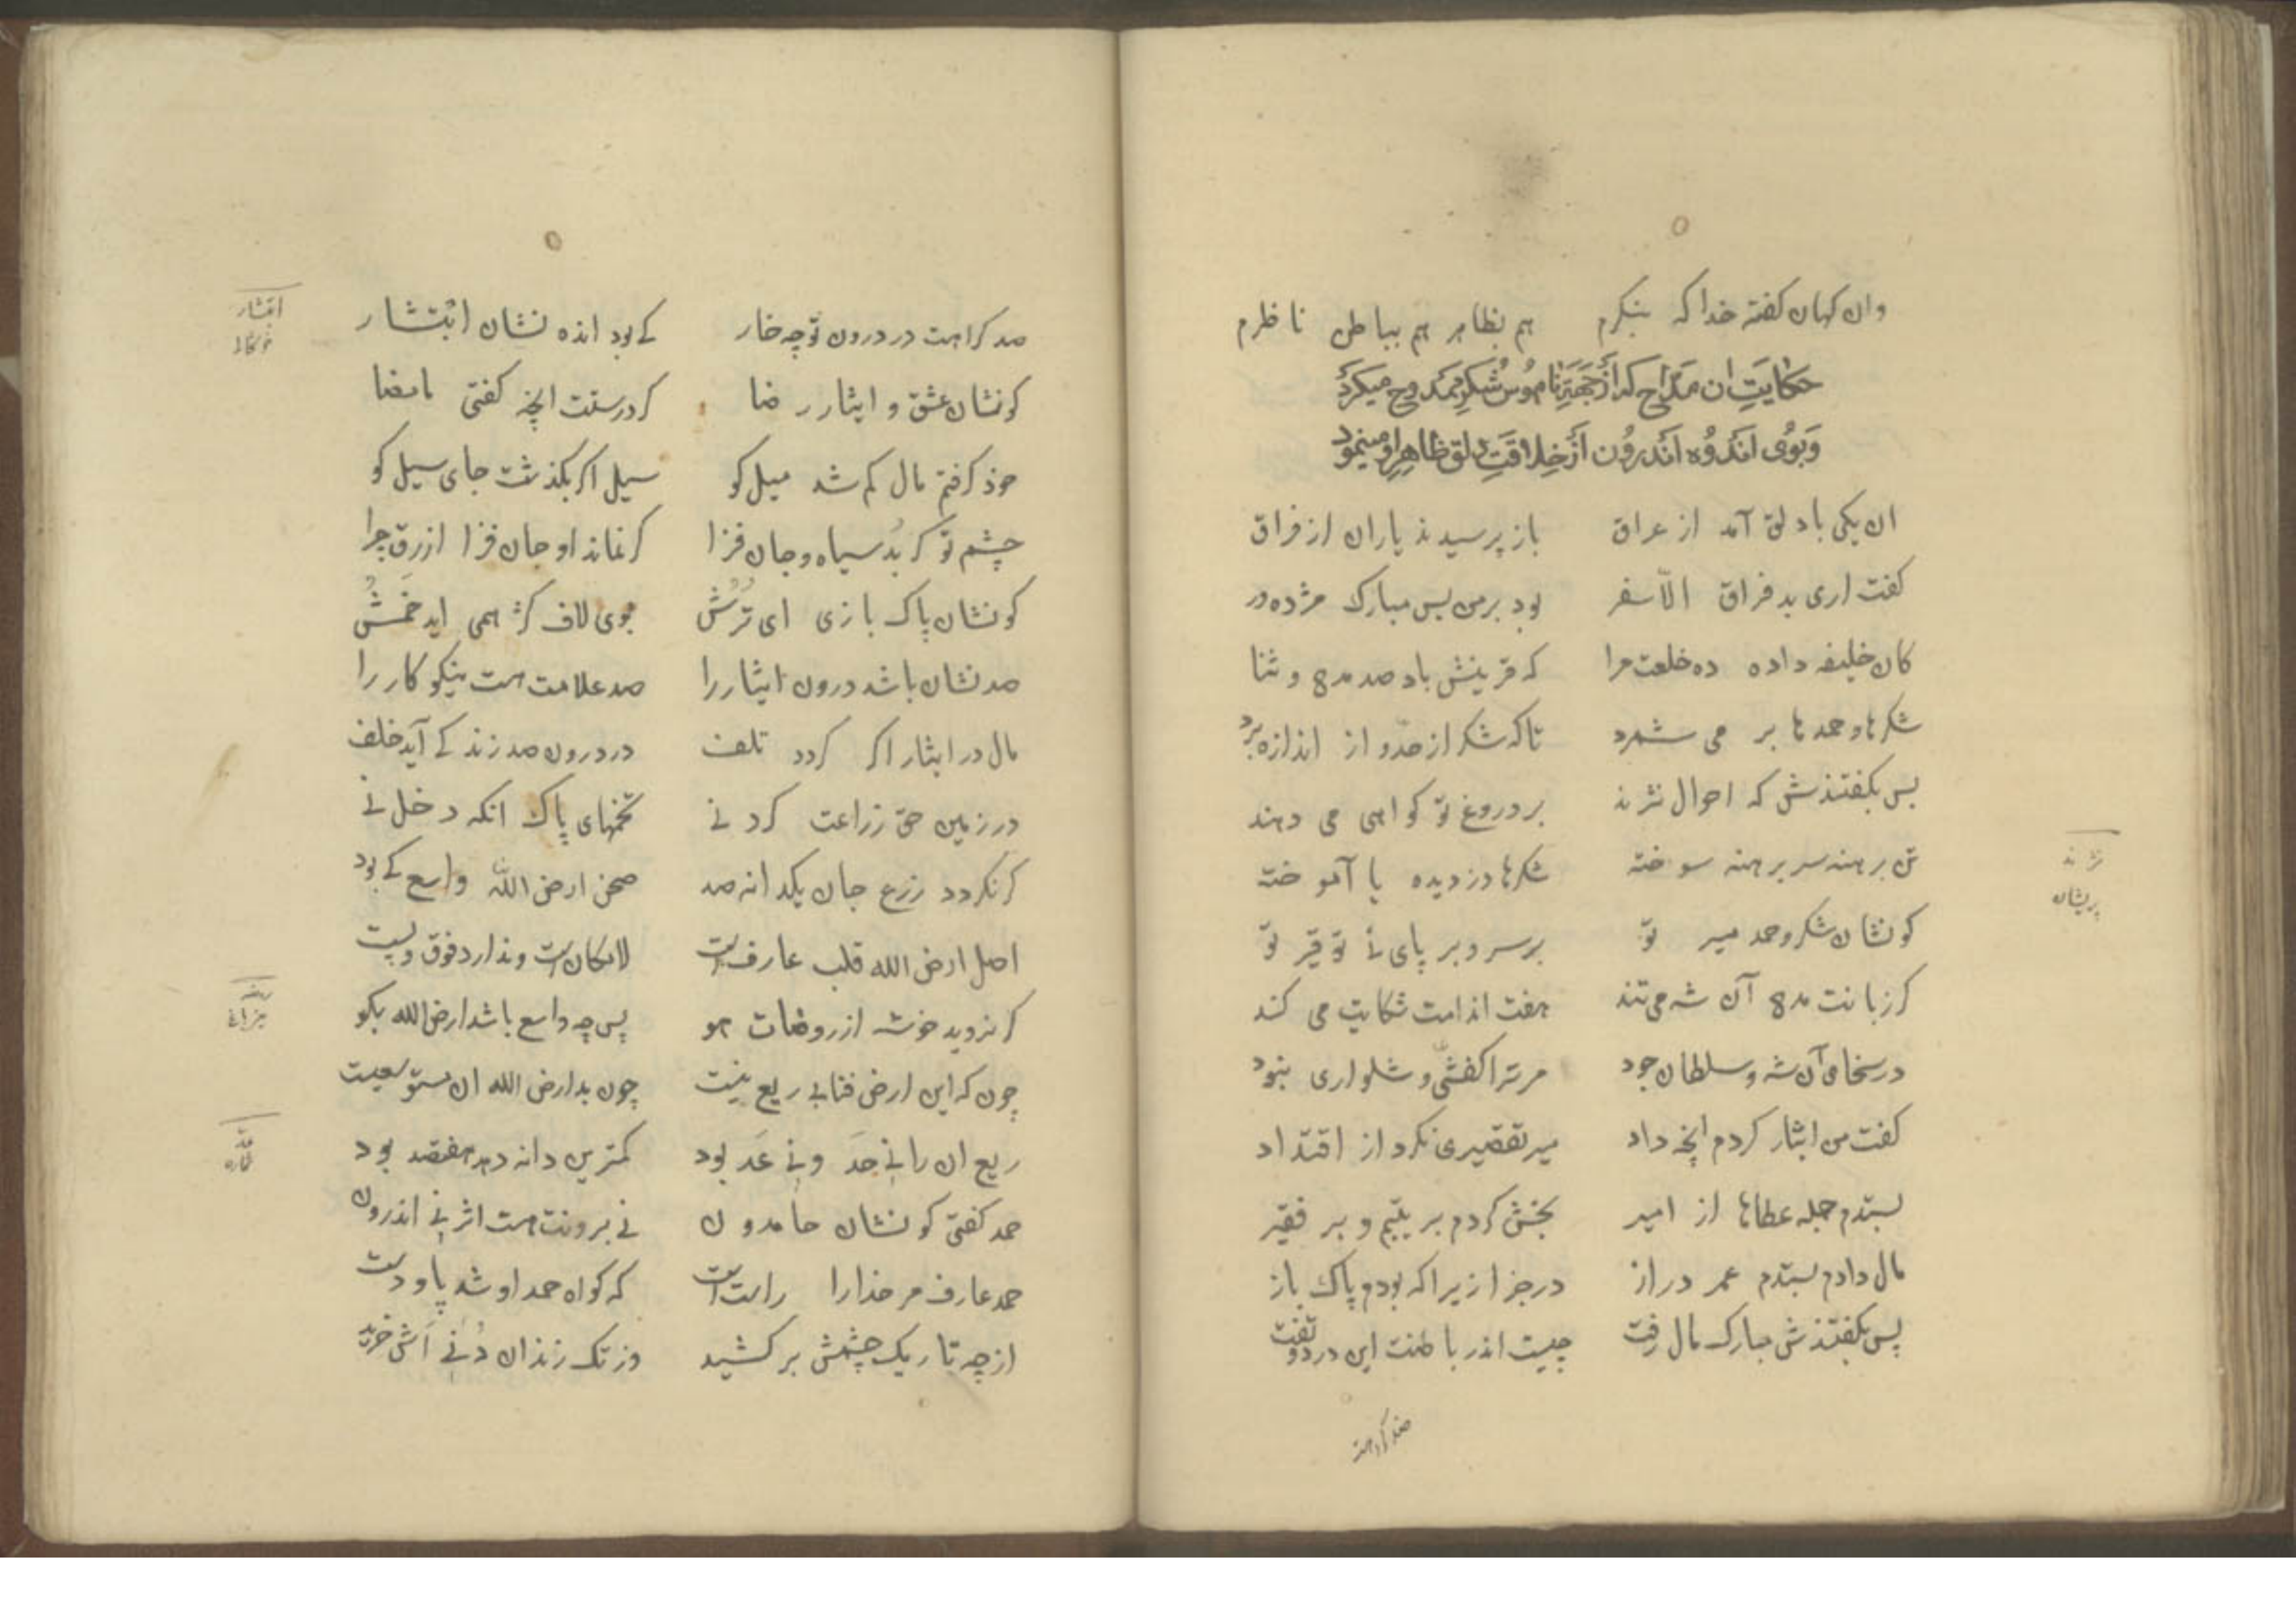 وان کهان کفته خدا که بنکرم هم بظاهر هم بباطن ناظرم
حکایت ان مداح که از جهة ناموس شکر ممدوح میکرد
وبوی اندوه اندرون از خلاقت دلق ظاهر او مینمود
ان یکی با دلق آمد از عراق باز پرسیدند یاران از فراق
کفت اری بد فراق الا سفر بود بر من بس مبارک مژده ور
کان خلیفه داده ده خلعت مرا که قرینش باد صد مدح و ثنا
شکرها و حمدها بر می شمرد تا که شکر از حد و از اندازه برد
بس بکفتندش که احوال نژند بر دروغ تو کواهی می دهند
تن برهنه سر برهنه سوخته شکرها دزدیده یا آموخته
کو نشان شکر و حمد میر تو بر سر و بر پای نی توقیر تو
کر زبانت مدح آن شه می تند هفت اندامت شکایت می کند
در سخای آن شه و سلطان جود مر ترا کفشی و شلواری نبود
کفت من ایثار کردم انچه داد میر تقصیری نکرد از افتداد
بستدم جمله عطاها از امیر بخش کردم بر یتیم و بر فقیر
مال دادم بستدم عمر دراز در جزا زیرا که بودم پاک باز
پس بکفتندش مبارک مال رفت چیست اندر باطنت این درد و تفت
نژند
پریشان
صد کراهت
صد کراهت در درون تو چه خار کی بود انده نشان ابتشار
کو نشان عشق و ایثار رضا کر درستت انچه کفتی ما مضا
خود کرفتم مال کم شد میل کو سیل اکر بکذشت جای سیل کو
چشم تو کر بد سیاه و جان فزا کر نماند او جان فزا ازرق چرا
کو نشان پاک بازی ای ترش بوی لاف کژ همی اید خمش
صد نشان باشد درون ایثار را صد علامت هست نیکو کار را
مال در ایثار اکر کردد تلف در درون صد زند کی آید خلف
در زمین حق زراعت کرد نی تخمهای پاک انکه دخل نی
کر نکردد زرع جان یکدانه صد صحن ارض الله واسع کی بود
اصل ارض الله قلب عارفست لامکان است و ندارد فوق و پست
کر نروید خوشه از روضات هو پس چه واسع باشد ارض الله بکو
چون که این ارض فنا بی ریع نیست چون بد ارض الله ان مستوسعیست
ریع ان را نی حد و نی عد بود کمترین دانه دهد هفصد بود
حمد کفتی کو نشان حامدون نی برونت هست اثر نی اندرون
حمد عارف مر خدا را راستست که کواه حمد او شد پا و دست
از چه تاریک چشمش بر کشید وز تک زندان دنی اش خرید